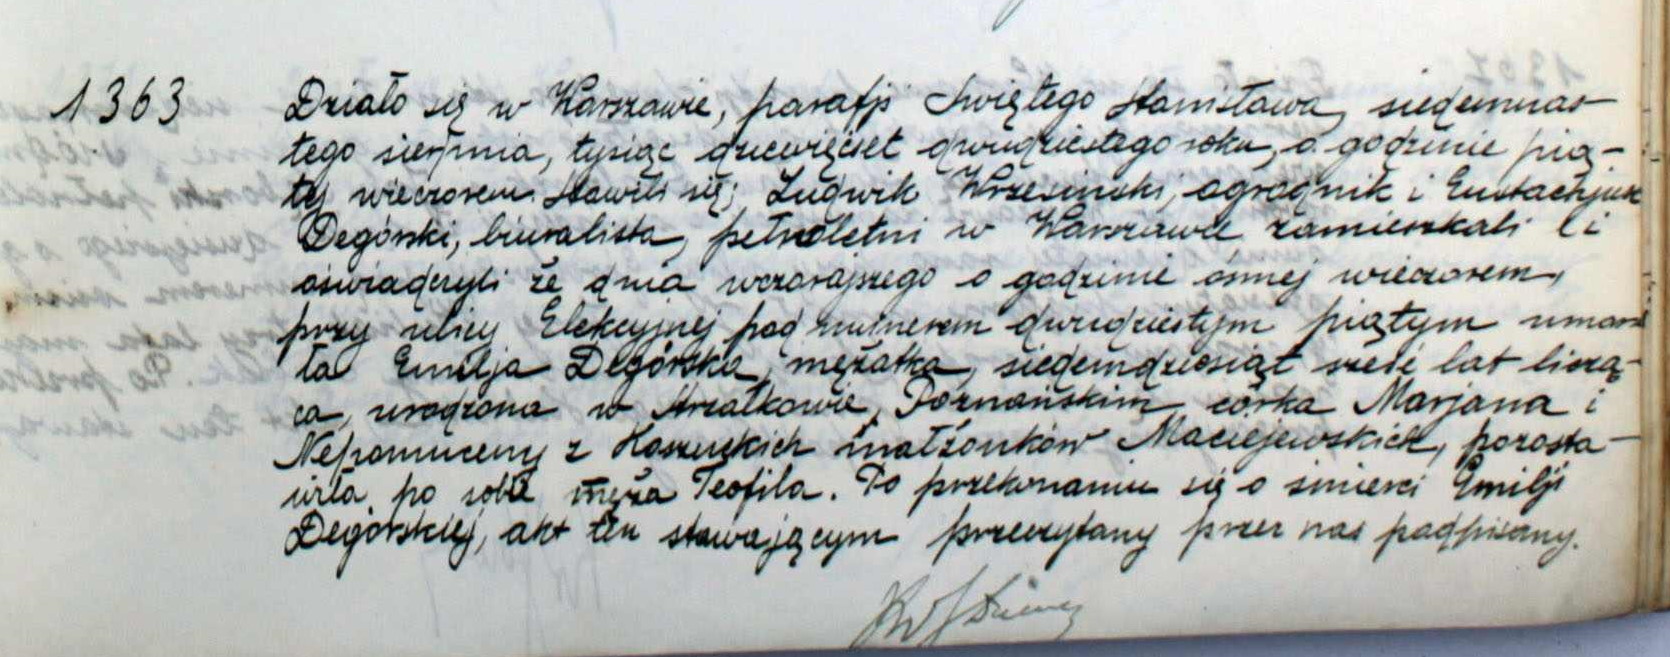 1363 Działo się w Warszawie, parafji Świętego Stanisława, siedemnas-
tego sierpnia, tysiąc dziewięćset dwudziestego roku, o godzinie pią-
tej wieczorem. Stawili się; Ludwik Wrzesiński, ogrodnik i Eustachjusz
Degórski, biuralista, pełnoletni w Warszawie zamieszkali i
oświadczyli że dnia wczorajszego o godzinie ósmej wieczorem,
przy ulicy Elekcyjnej pod numerem dwudziestym piątym umar-
ła Emilja Degórska, mężatka, siedemdziesiąt sześć lat liczą-
ca, urodzona w Strzałkowie, Poznańskim, córka Marjana i
Nepomuceny z Koszuckich małżonków Maciejewskich, pozosta-
wiła po sobie męża Teofila. Po przekonaniu się o śmierci Emilji
Degórskiej, akt ten stawającym przeczytany przez nas podpisany.